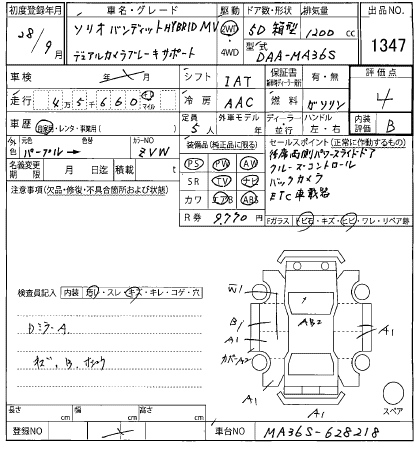 初度登録年月 車名・グレード 駆動 ドア数・形状 排気量 出品NO
28/9月 ソリオバンディットHYBRID MV 2WD 5D 箱型 1200 cc 1347
デュアルカメラブレーキサポート 4WD 型式 DAA-MA36S
車検 年 月 シフト IAT 保証書 新車時ディーラー発行 有・無 評価点
走行 4万5千660 キロ マイル 冷房 AAC 燃料 ガソリン 4
車歴 自家用・レンタ・事業用( ) 定員 5人 外車モデル 年 ディーラー・並行 ハンドル 左・右 内装評価 B
外色 元色 パープル→ 色替 カラーNO ZVW 装備品(純正品に限る) セールスポイント(正常に作動するもの)
名義変更期限 月 日迄 積載 t PS PW AW 後席両側パワースライドドア
注意事項(欠品・修復・不具合箇所および状態) SR TV ナビ クルーズコントロール
カワ エアB ABS バックカメラ
R券 9,770円 ETC車載器
Fガラス トビ石・キズ・ヒビ・ワレ・リペア跡
検査員記入 内装 汚レ・スレ・キズ・キレ・コゲ・穴
W1
B1 AB2
DミラーA. A1 A1
カバーA2
ネジ、B.
A1 A1
A1 スペア
長さ cm 幅 cm 高さ cm
登録NO 車台NO MA36S-628218